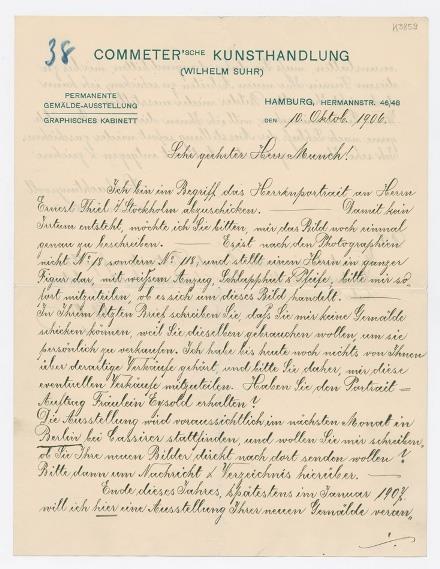 K3859
38
COMMETER'SCHE KUNSTHANDLUNG
(WILHELM SUHR)
PERMANENTE
GEMÄLDE-AUSSTELLUNG
GRAPHISCHES KABINETT
HAMBURG, HERMANNSTR. 46/48
DEN 10. Oktob. 1906.
Sehr geehrter Herr Munch!
Ich bin im Begriff das Herrenportrait an Herrn
Ernest Thiel i/ Stockholm abzuschicken. — Damit kein
Irrtum entsteht, möchte ich Sie bitten, mir das Bild noch einmal
genau zu beschreiben. — Es ist nach den Photographien
nicht No. 18 sondern No. 118, und stellt einen Herrn in ganzer
Figur dar, mit weißem Anzug, Schlapphut & Pfeife, bitte mir so-
fort mitzuteilen, ob es sich um dieses Bild handelt. —
In Ihrem letzten Brief schreiben Sie, daß Sie mir keine Gemälde
schicken können, weil Sie dieselben gebrauchen wollen, um sie
persönlich zu verkaufen. Ich habe bis heute noch nichts von Ihnen
über derartige Verkäufe gehört, und bitte Sie daher, mir diese
eventuellen Verkäufe mitzuteilen. Haben Sie den Portrait-
Auftrag Fräulein Exsold erhalten?
Die Ausstellung wird voraussichtlich im nächsten Monat in
Berlin bei Cassirer stattfinden, und wollen Sie mir schreiben,
ob Sie Ihre neuen Bilder direkt nach dort senden wollen?
Bitte dann um Nachricht & Verzeichnis hierüber. —
Ende dieses Jahres, spätestens im Januar 1907,
will ich hier eine Ausstellung Ihrer neuen Gemälde veran-